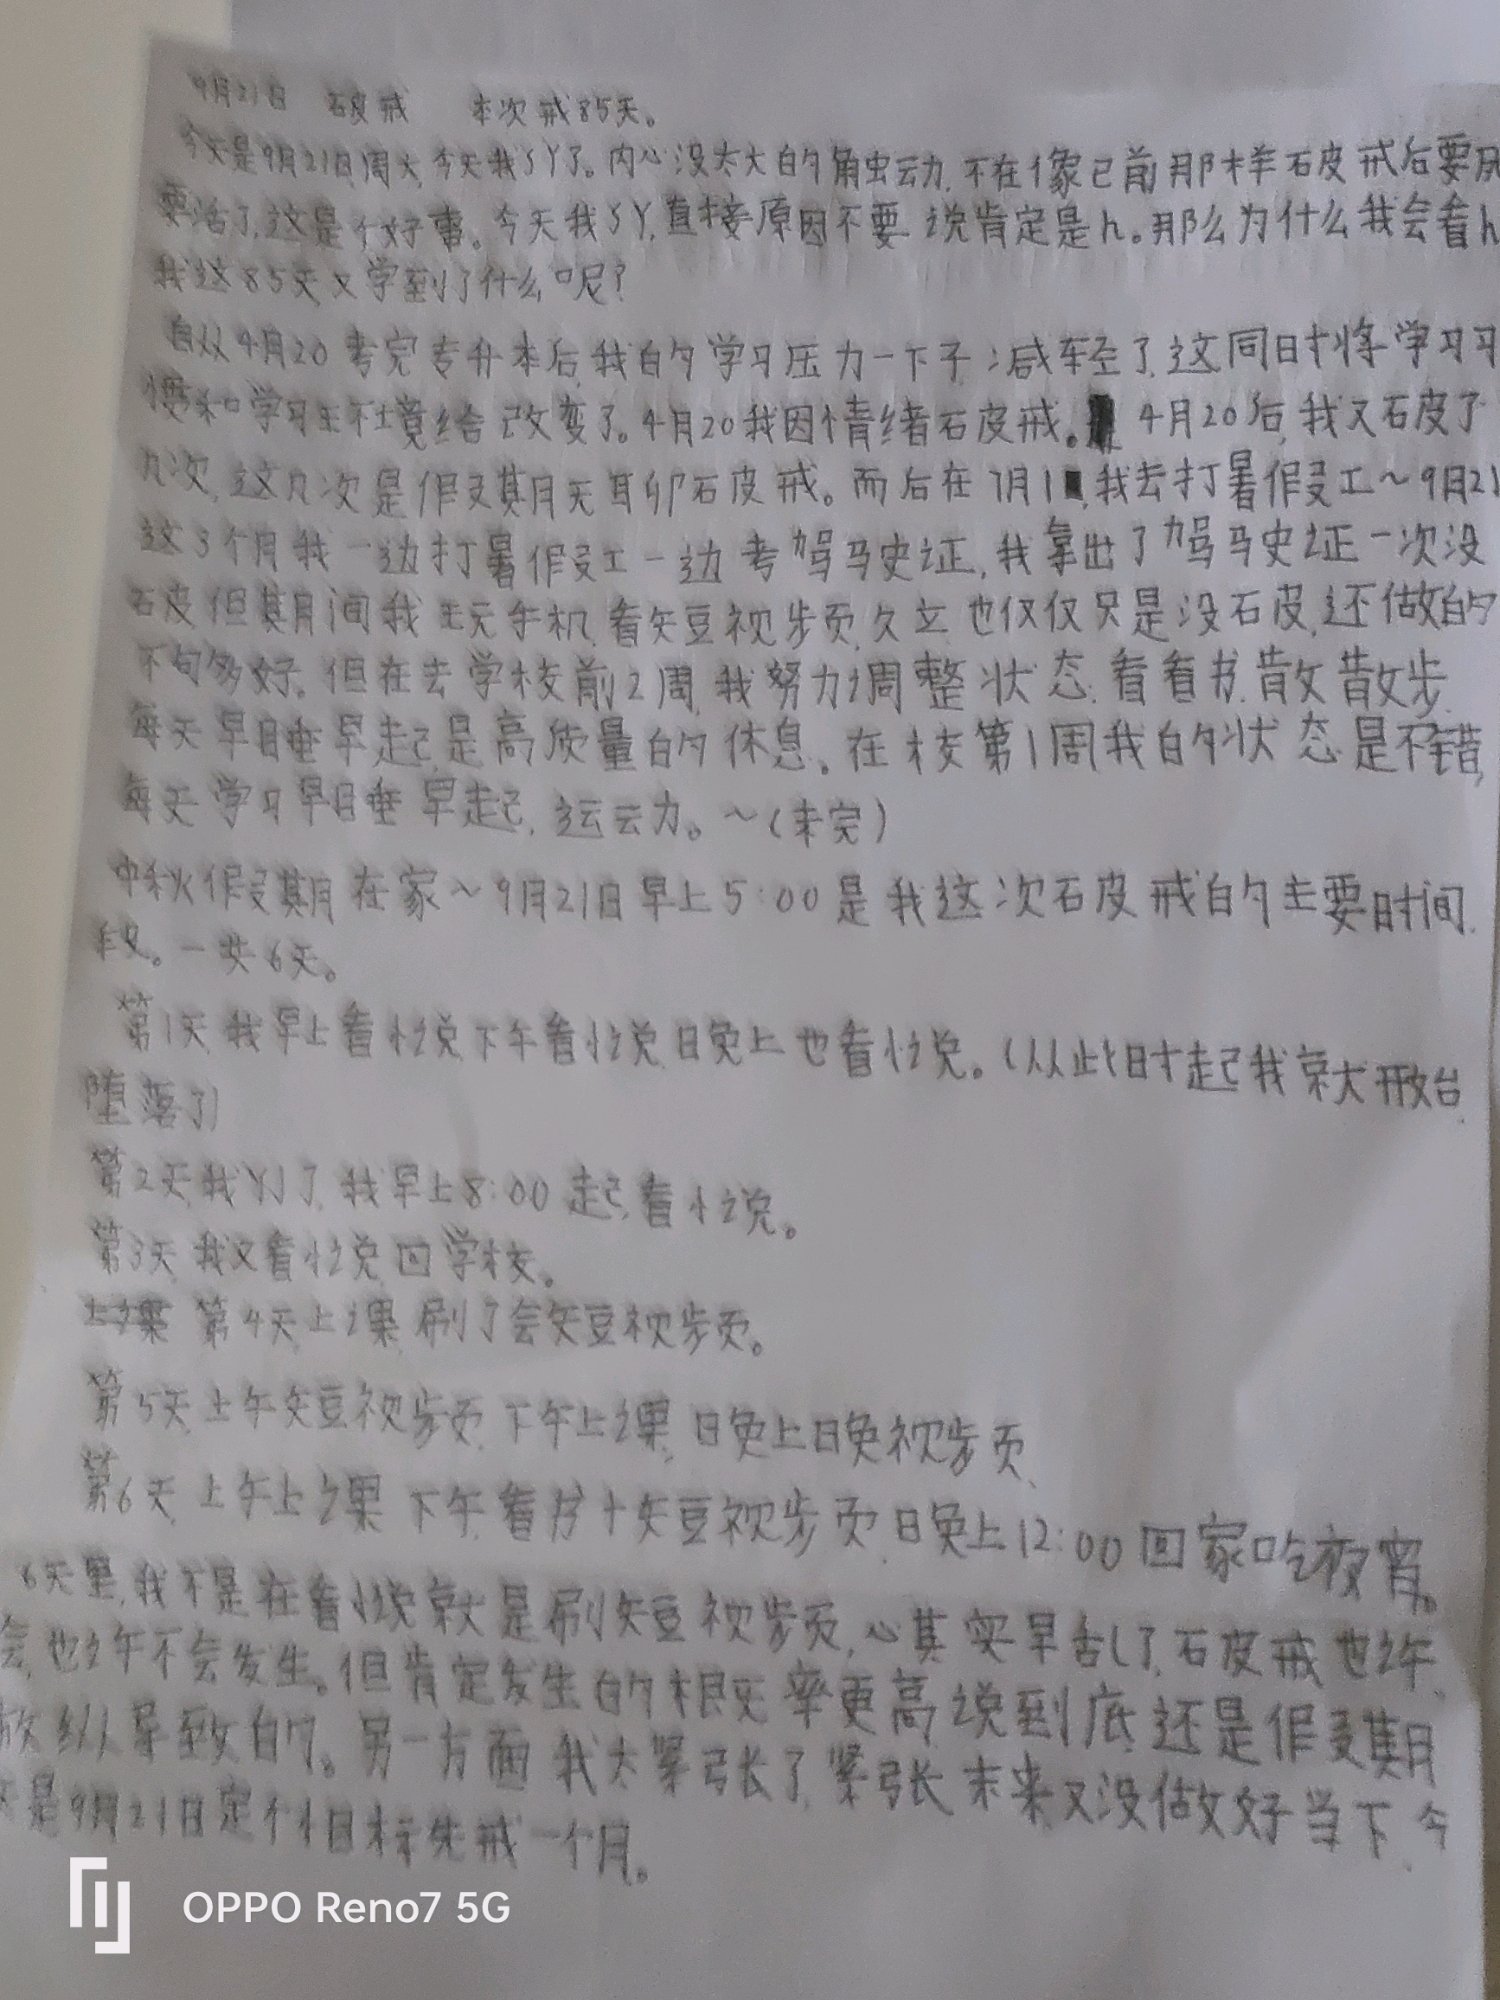 9月21日 破戒 本次戒85天。
今天是9月21日周六,今天我SY了。内心没太大的触动,不在像已前那样破戒后要死
要活了,这是个好事。今天我SY,直接原因不要说肯定是h。那么为什么我会看h
我这85天又学到了什么呢?
自从4月20考完专升本后,我的学习压力一下子减轻了,这同时将学习习
惯和学习环境给改变了。4月20我因情绪破戒。4月20后,我又破了
几次,这几次是假期无聊破戒。而后在7月1,我去打暑假工~9月21
这3个月我一边打暑假工一边考驾驶证,我拿出了驾驶证一次没
破但期间我玩手机,看短视频,久立也仅仅只是没破,还做的
不够好。但在去学校前2周,我努力调整状态.看看书.散散步.
每天早睡早起,是高质量的休息。在校第1周我的状态是不错,
每天学习早睡早起,运动。~(未完)
中秋假期在家~9月21日早上5:00是我这次破戒的主要时间
段。一共6天。
第1天,我早上看小说,下午看小说,晚上也看小说。(从此时起我就开始
堕落了)
第2天,我YJ了,我早上8:00起,看小说。
第3天,我又看小说,回学校。
第4天,上课,刷了会短视频。
第5天,上午短视频,下午上课,晚上晚视频
第6天,上午上课,下午看片+短视频,晚上12:00回家吃夜宵。
6天里,我不是在看小说就是刷短视频,心其实早乱了,破戒也许
会,也许不会发生。但肯定发生的概率更高,说到底,还是假期
放纵导致的。另一方面我太紧张了,紧张未来又没做好当下,今
天是9月21日定个小目标先戒一个月。
OPPO Reno7 5G